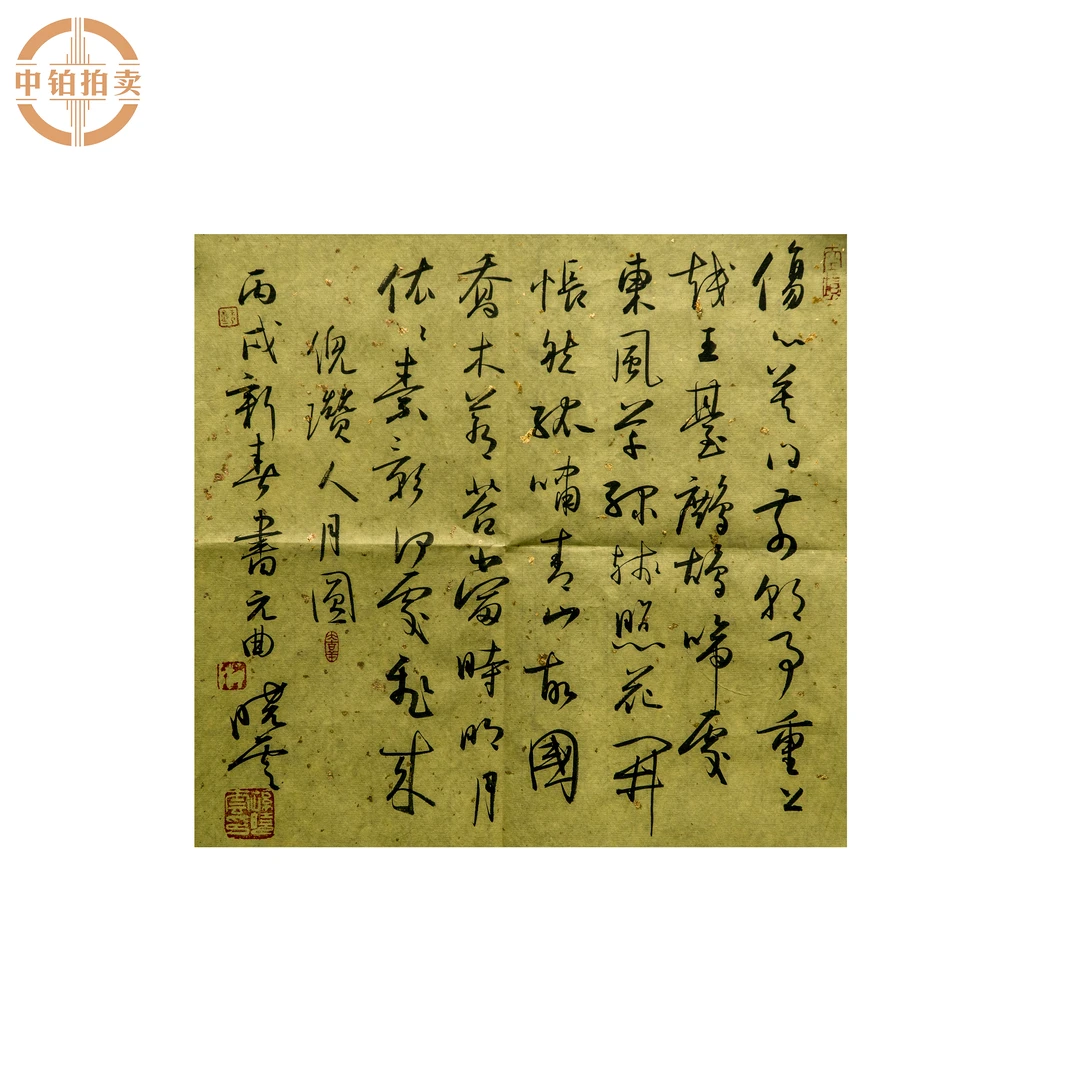 中铂拍卖
傷心莫问前朝事重上
越王臺鷓鴣啼處
東風草綠殘照花開
悵然孤嘯青山故國
喬木蒼苔當時明月
依〻素影何處飛來
倪瓚人月圓
丙戌新春書元曲
曉雲